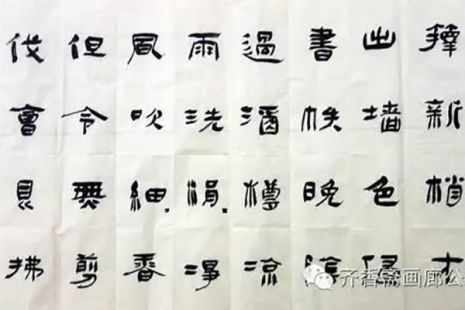 籜新梢才
出墻色侵
書帙晚陰
過酒樽涼
雨洗娟:淨
風吹細:香
但令無剪
伐會見拂
齐香斋画廊公